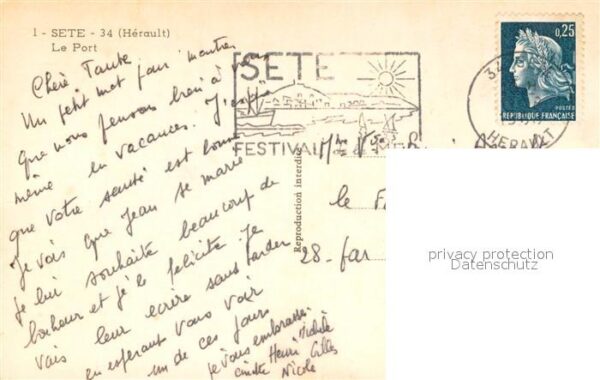 1 - SETE - 34 (Hérault)
Le Port
Chère Tante
Un petit mot pour montrer
que nous pensons bien à vous
même en vacances. J'espère
que votre santé est bonne
Je vois que Jean se marie
Je lui souhaite beaucoup de
bonheur et je le félicite. Je
vais leur écrire sans tarder
en espérant vous voir
un de ces jours
je vous embrasse.
Michèle
Henri Gilles
Nicole
SETE
FESTIVAL
0,25
POSTES
REPUBLIQUE FRANÇAISE
34
HERAULT
Reproduction interdite
Mme Vve
le
28
privacy protection
Datenschutz